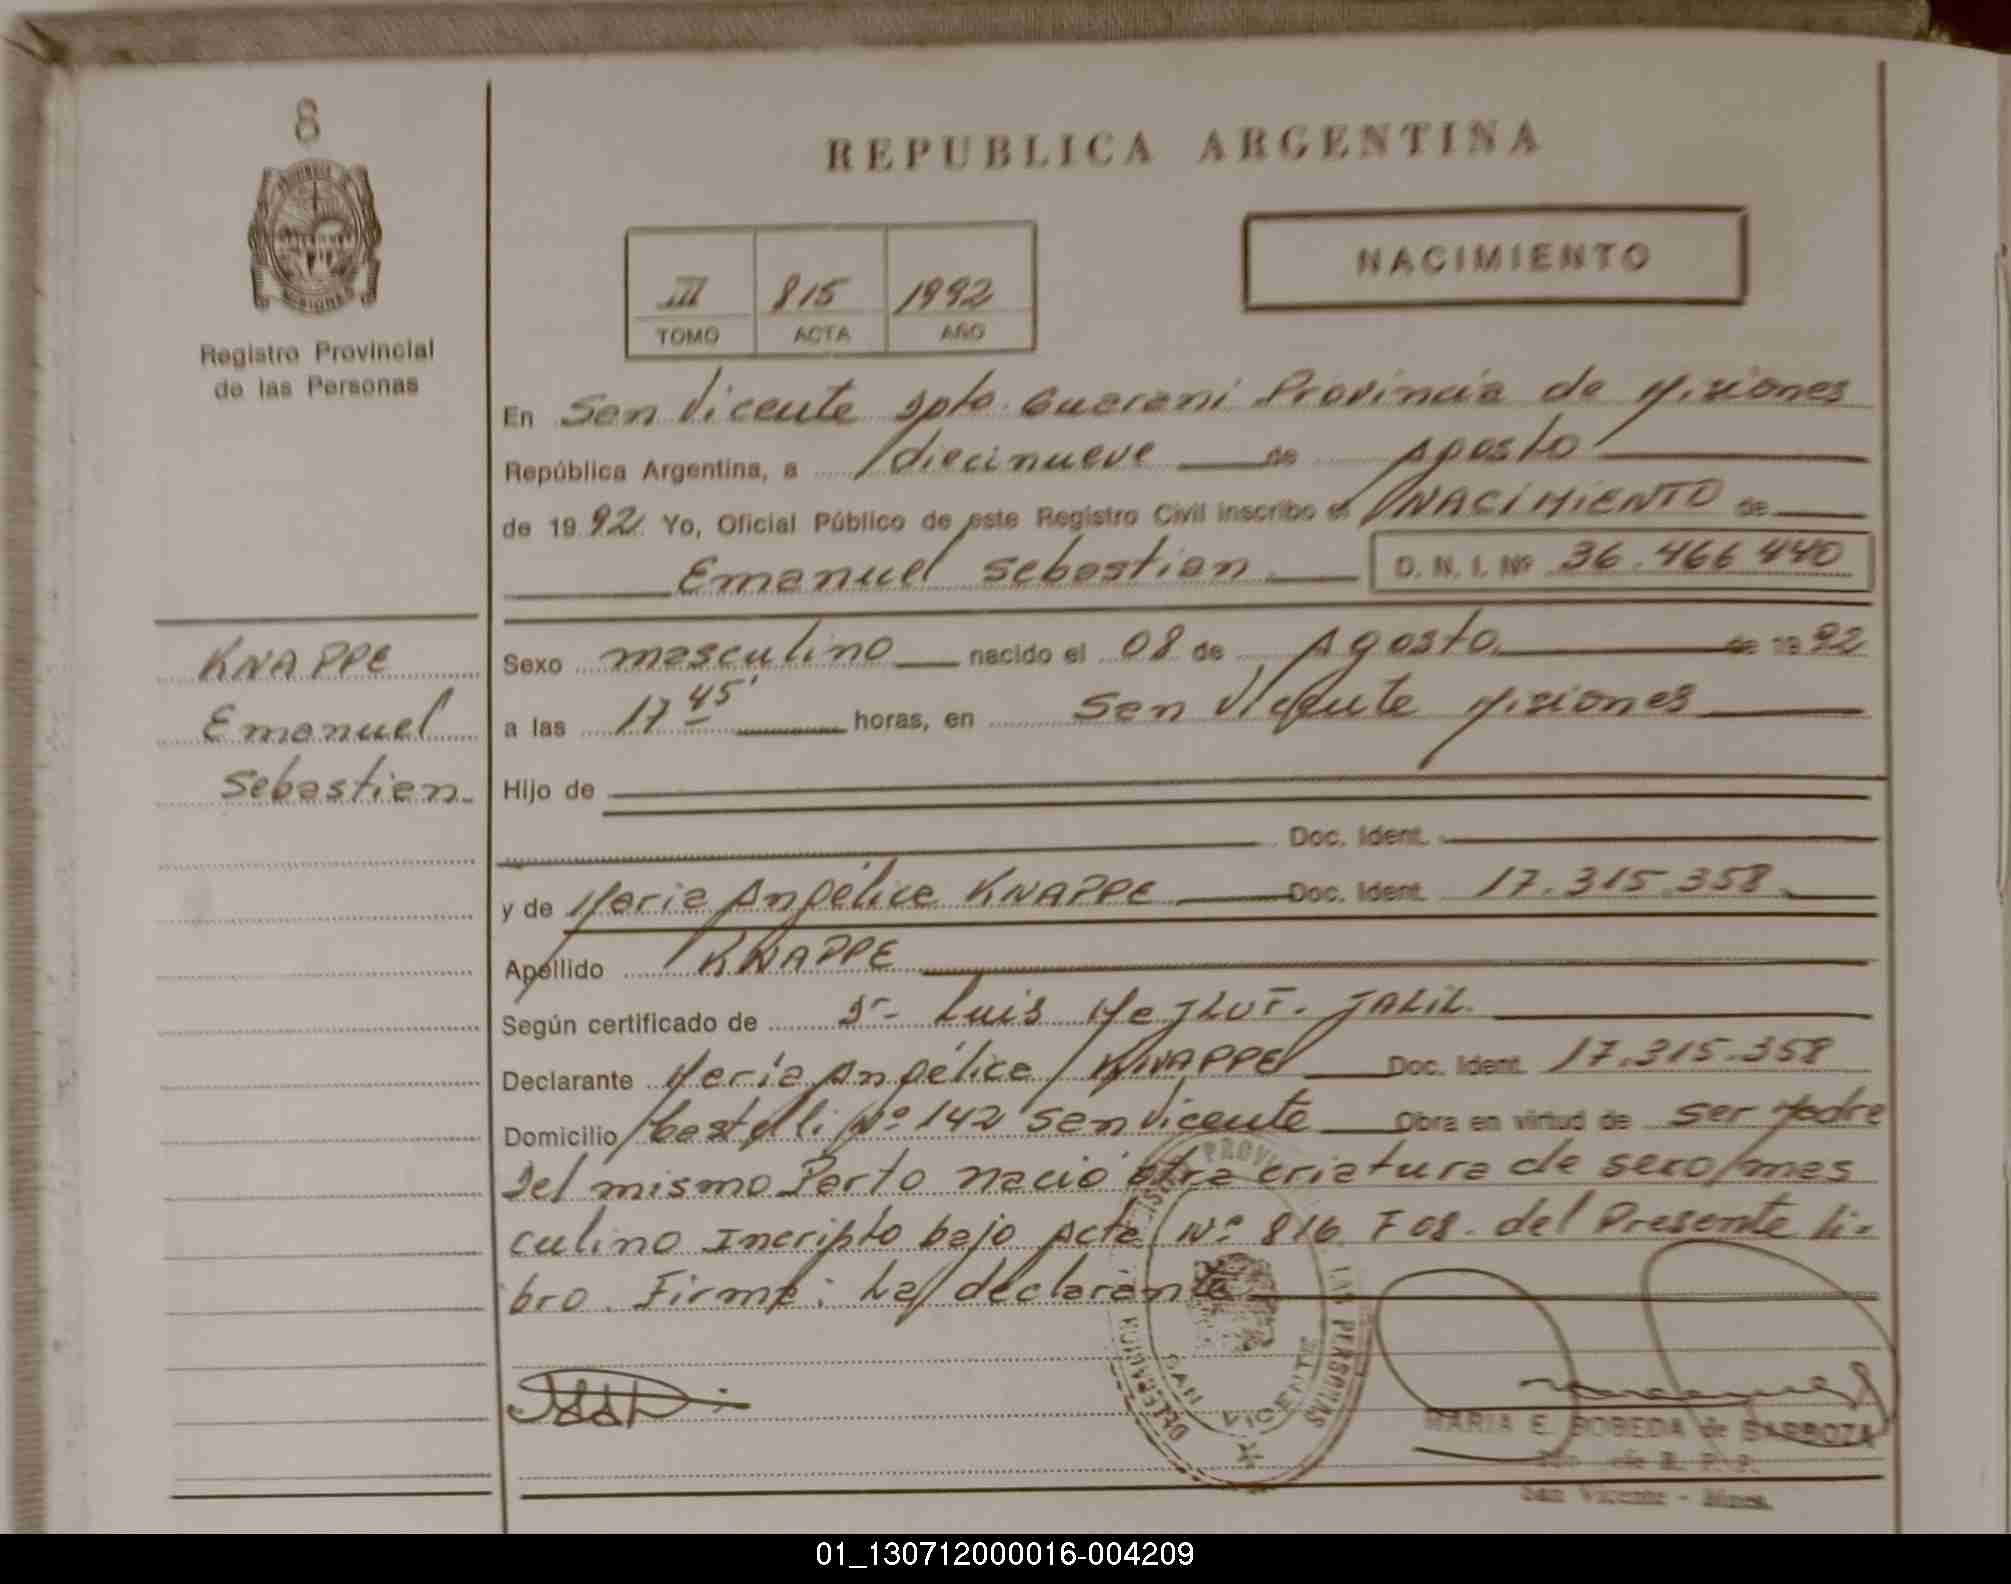 8
PROVINCIA DE
MISIONES
Registro Provincial
de las Personas
REPUBLICA ARGENTINA
III 815 1992
TOMO ACTA AÑO
NACIMIENTO
En San Vicente Dpto. Guarani Provincia de Misiones
República Argentina, a diecinueve de Agosto
de 1992. Yo, Oficial Público de este Registro Civil inscribo el NACIMIENTO de
Emanuel Sebastian D. N. I. Nº 36.466 440
KNAPPE
Emanuel
Sebastian
Sexo masculino nacido el 08 de Agosto de 1992
a las 17 45' horas, en San Vicente Misiones
Hijo de
Doc. Ident.
y de Maria Angélica KNAPPE Doc. Ident. 17.315.358
Apellido KNAPPE
Según certificado de Dr- Luis JALIL.
Declarante María Angélica KNAPPE Doc. Ident. 17.315.358
Domicilio Nº 142 San Vicente Obra en virtud de ser Madre
Del mismo Parto nació otra criatura de sexo mas
culino Incripto bajo Acta Nº 816 Fº 08. del Presente li-
bro. Firma: La declarante
DELEGACION SAN VICENTE LAS PERSONAS
MARIA E. BOBEDA de BARROZA
de R. P. P.
San Vicente - Mnes.
01_130712000016-004209